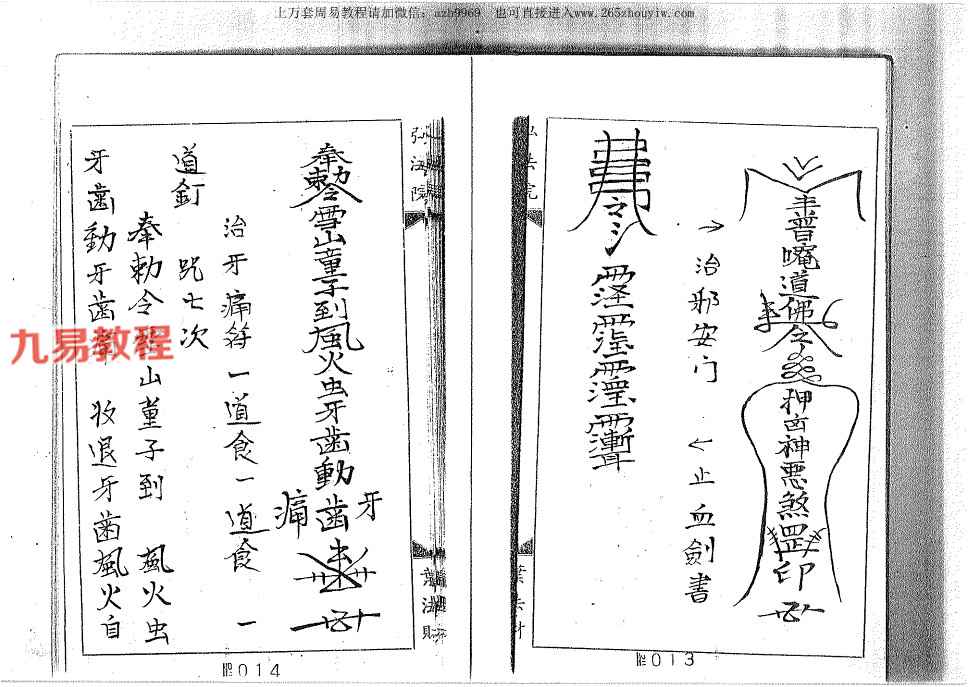 上万套周易教程请加微信：azh9969　也可直接进入www.265zhouyiw.com
普唵道佛令
押凶神恶煞罡印
→ 治邪安门
← 止血劍書
弘法院
013
奉勅令雪山童子到風火虫牙齒動
牙
齒虫
痛
治牙痛符一道食一道食一
道釘　咒七次
奉勅令雪山董子到　風火虫
牙齒動牙齒　牧退牙齒風火自
弘法院
葉法財
014
九易教程